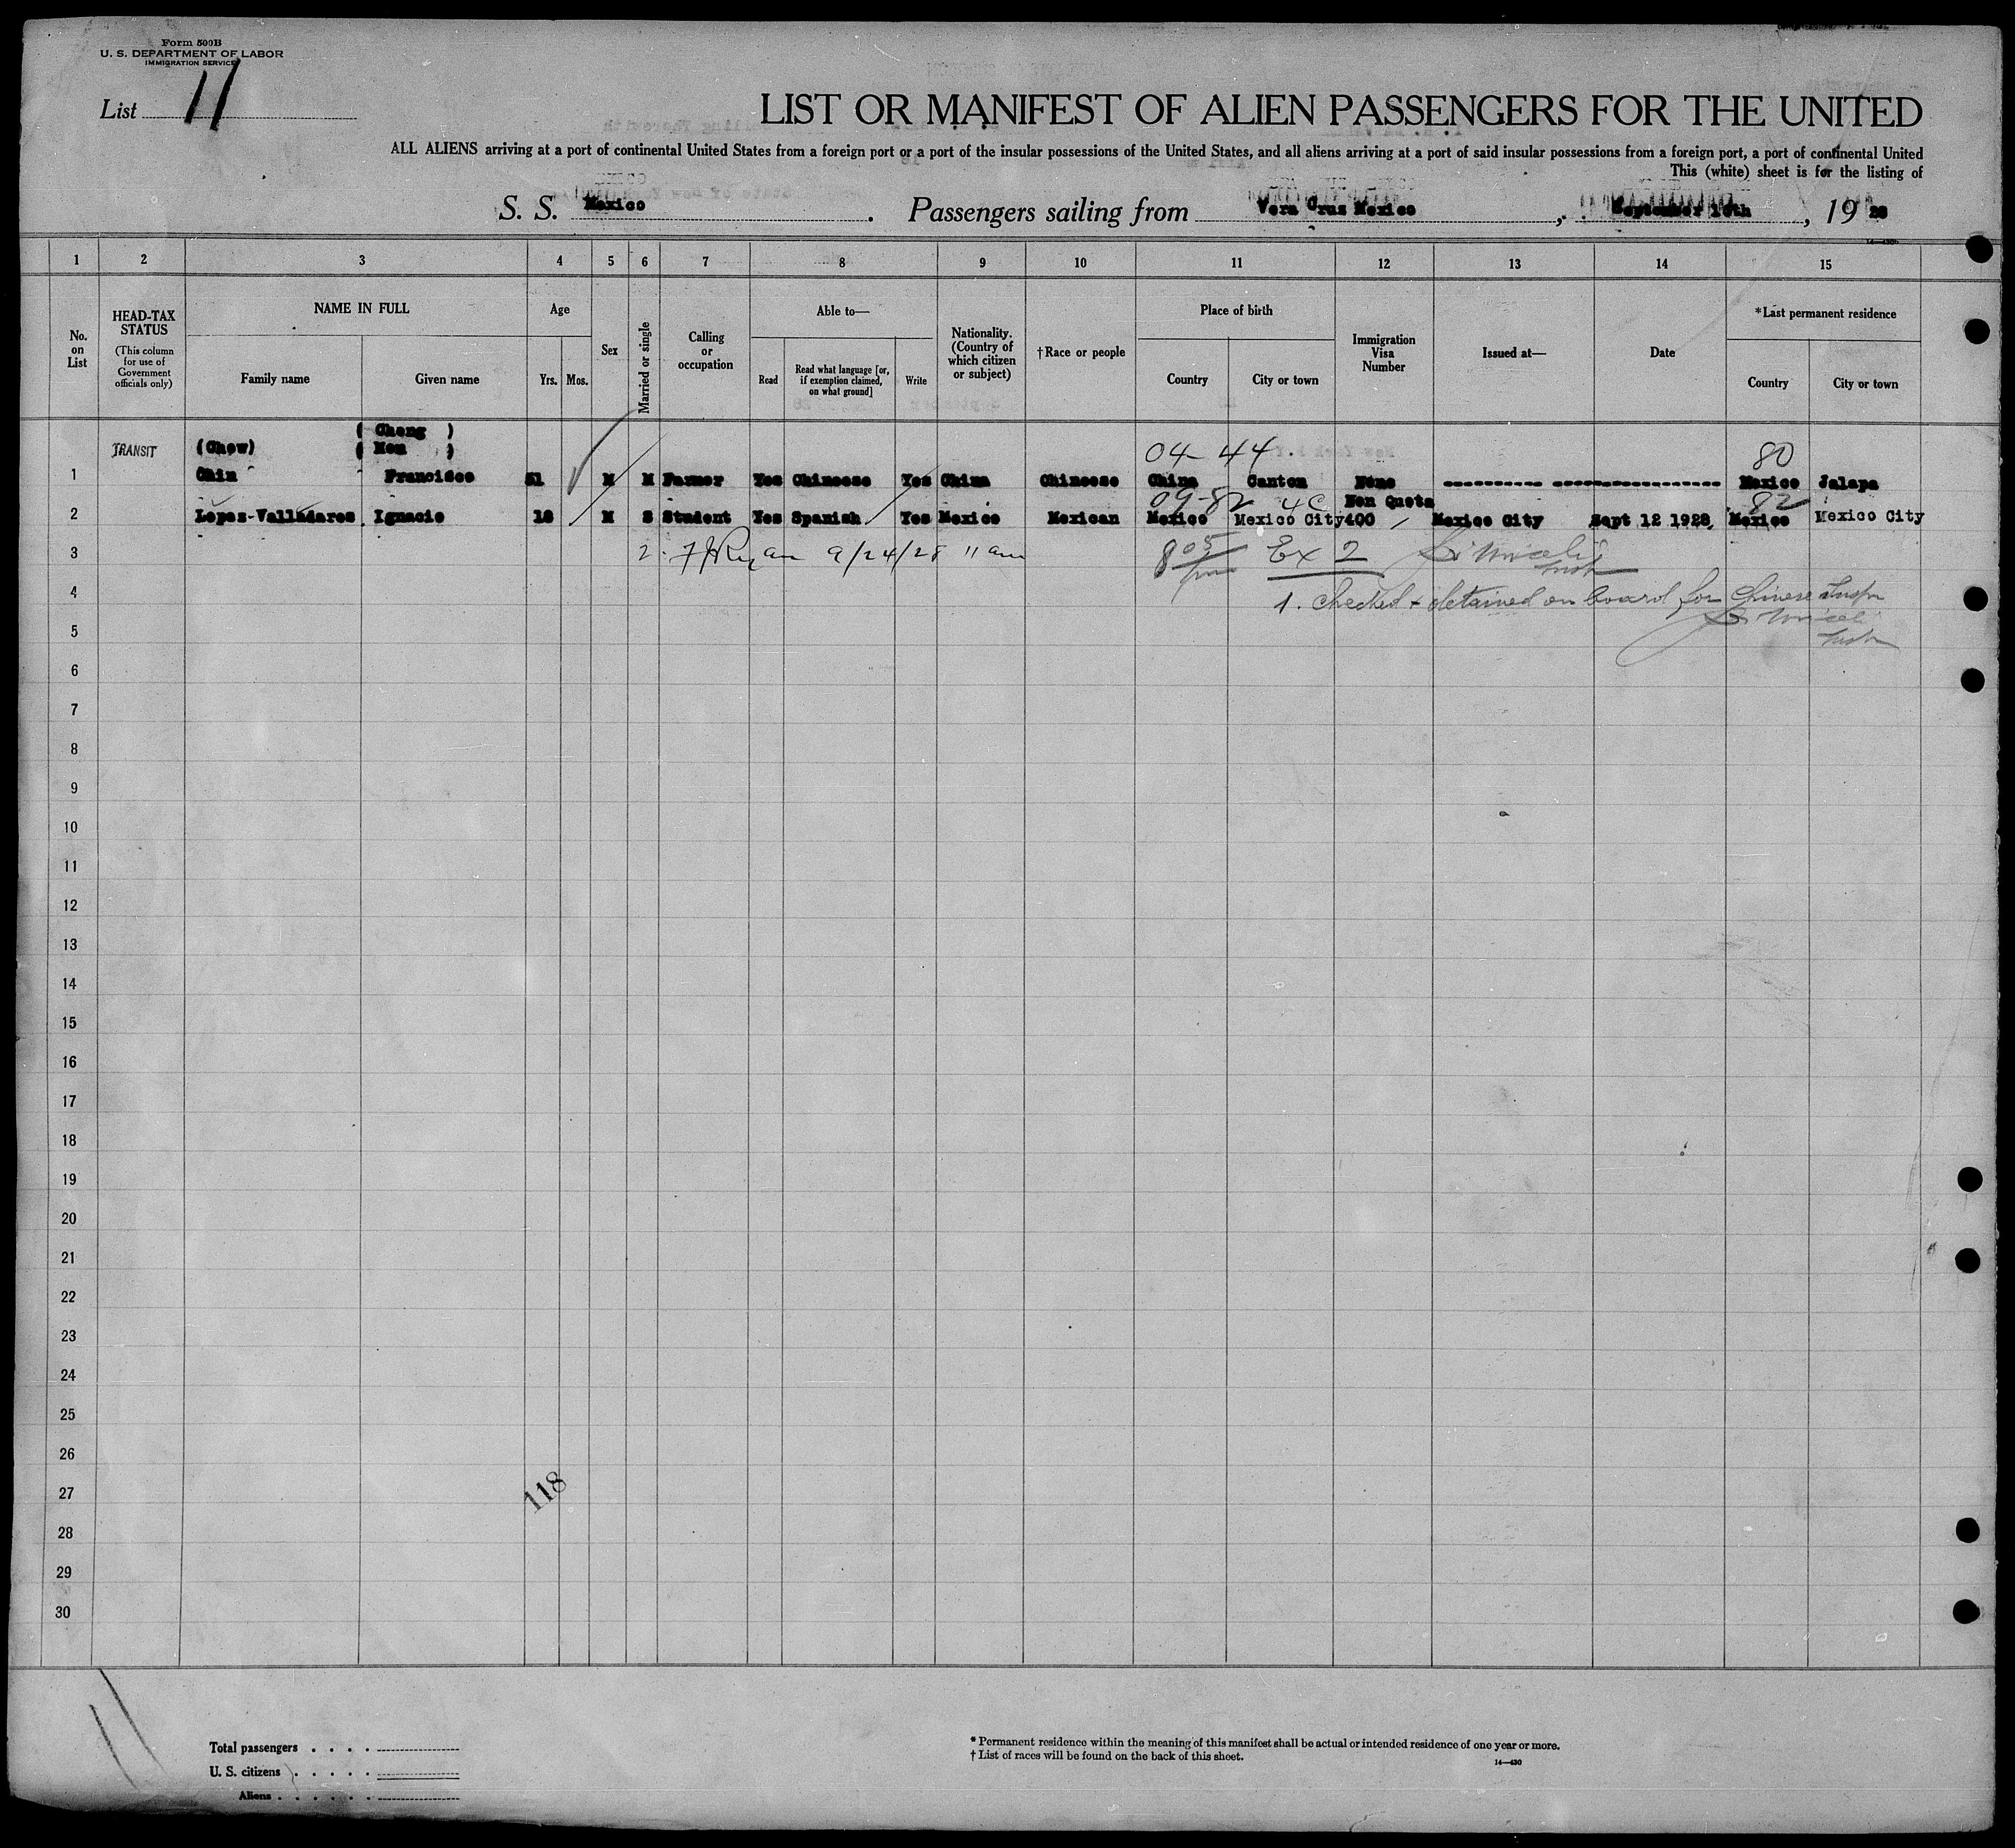 Form 500B
U. S. DEPARTMENT OF LABOR
IMMIGRATION SERVICE
List 11
LIST OR MANIFEST OF ALIEN PASSENGERS FOR THE UNITED
ALL ALIENS arriving at a port of continental United States from a foreign port or a port of the insular possessions of the United States, and all aliens arriving at a port of said insular possessions from a foreign port, a port of continental United
This (white) sheet is for the listing of
S. S. Mexico . Passengers sailing from Vera Cruz Mexico , September , 19 28
1 2 3 4 5 6 7 8 9 10 11 12 13 14 15
No. on List
HEAD-TAX STATUS
(This column for use of Government officials only)
NAME IN FULL
Family name Given name
Age
Yrs. Mos.
Sex
Married or single
Calling or occupation
Able to—
Read
Read what language [or, if exemption claimed, on what ground]
Write
Nationality. (Country of which citizen or subject)
†Race or people
Place of birth
Country City or town
Immigration Visa Number
Issued at—
Date
*Last permanent residence
Country City or town
( Cheng )
TRANSIT (Chow) ( Mon ) 04-44. 80
1 Chin Francisco 51 M M Farmer Yes Chineese Yes China Chineese China Canton None Mexico Jalapa
09-82 4C Non Quota 82
2 Lopez-Valladares Ignacio 18 M S Student Yes Spanish Yes Mexico Mexican Mexico Mexico City 400 Mexico City Sept 12 1928 Mexico Mexico City
3 2. F J Ryan 9/24/28 11 am 8 05 pm Ex 2
4 1. Checked + detained on board for Chinese Inspr
5
6
7
8
9
10
11
12
13
14
15
16
17
18
19
20
21
22
23
24
25
26
27
118
28
29
30
Total passengers . . . .
U. S. citizens . . . . .
Aliens . . . . . .
* Permanent residence within the meaning of this manifest shall be actual or intended residence of one year or more.
† List of races will be found on the back of this sheet.
14—430